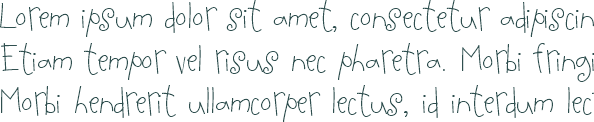 Lorem ipsum dolor sit amet, consectetur adipiscin
Etiam tempor vel risus nec pharetra. Morbi fringi
Morbi hendrerit ullamcorper lectus, id interdum lect